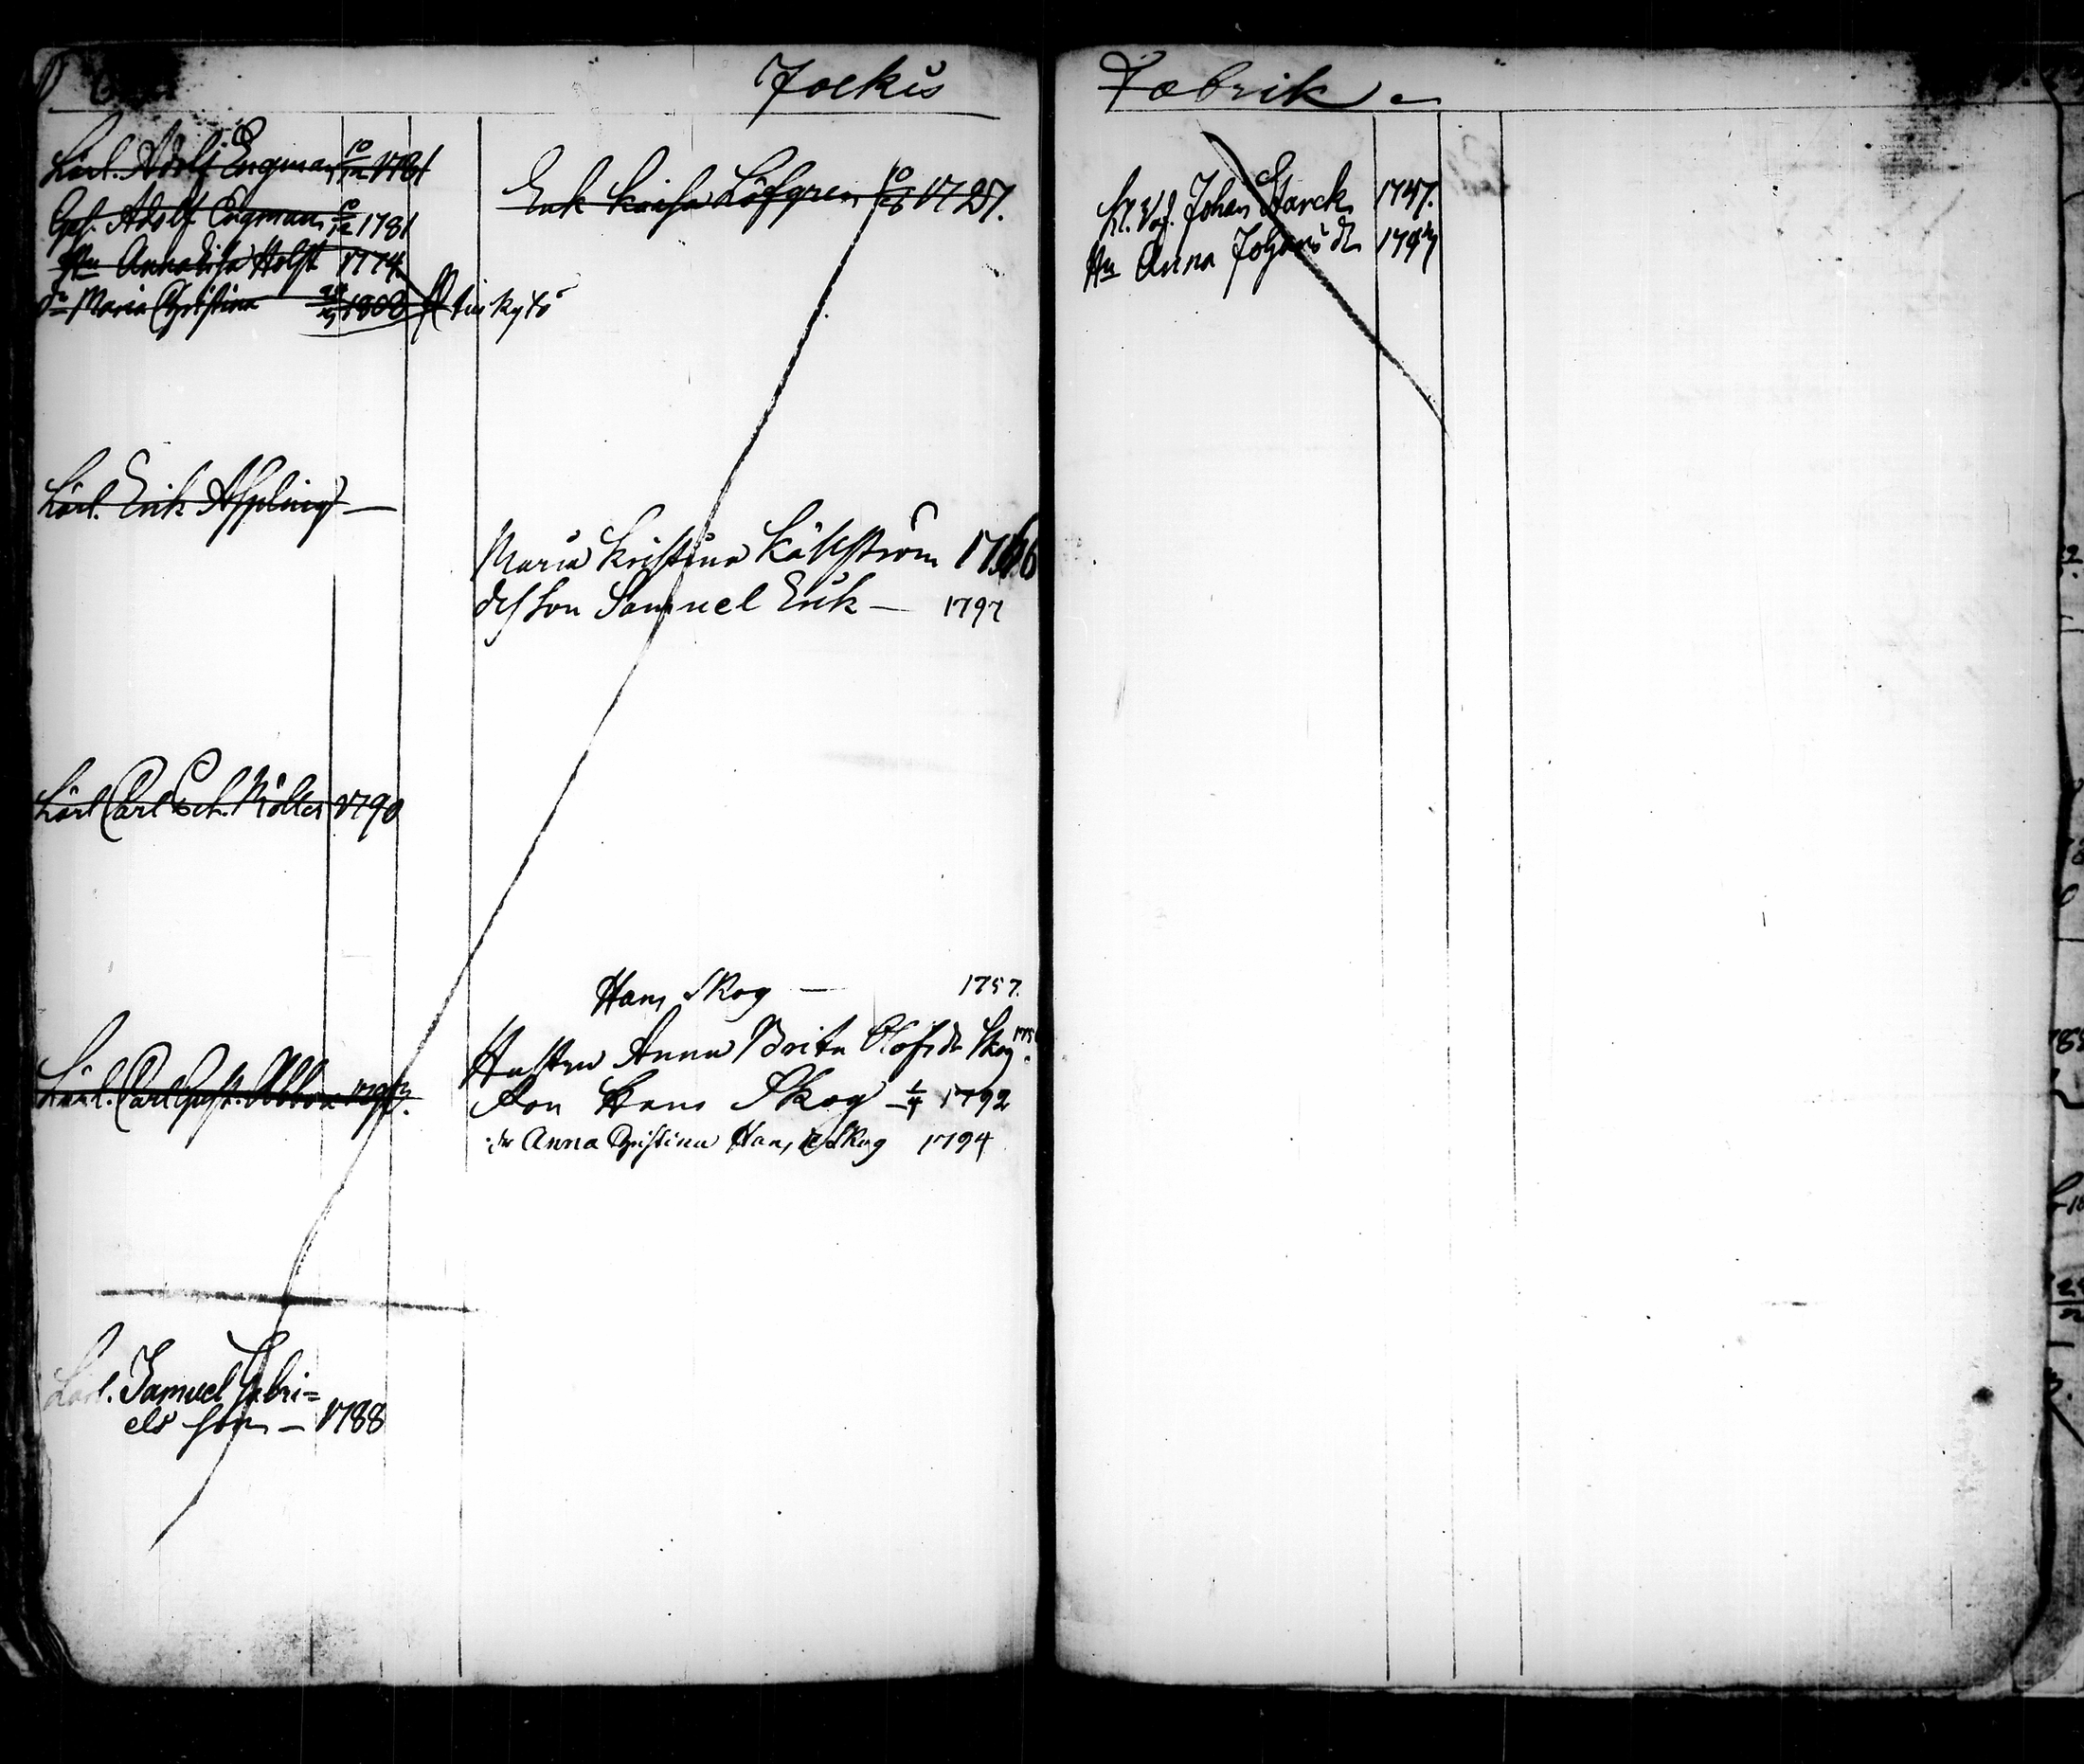 Jockis Fabrik
Lärl. Adolf Engman 10/12 1781
Gesl. Adolf Engman 10/12 1781
Hu Anna Lisa Holst 1774
dr Maria Christina 1808
Erik Löfgren 1757.
Lärl. Erik Aspling
Maria Kristina Källström 1766
dess son Samuel Erik 1797
Lärl Carl Möller 1790
Hans Skog 1757.
Hustru Anna Brita Olofsdr Skog
Son Hans Skog 1/4 1792
dr Anna Christina Hansdr Skog 1794
Lärl. Carl Gust.
Lärl. Samuel Gabri=
els son 1788
Johan Starck 1747.
Hu Anna Johansdr 1747